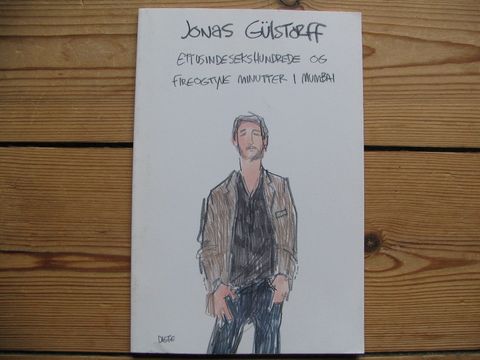 JONAS GÜLSTORFF
ETTUSINDESEKSHUNDREDE OG
FIREOGTYVE MINUTTER I MUMBAI